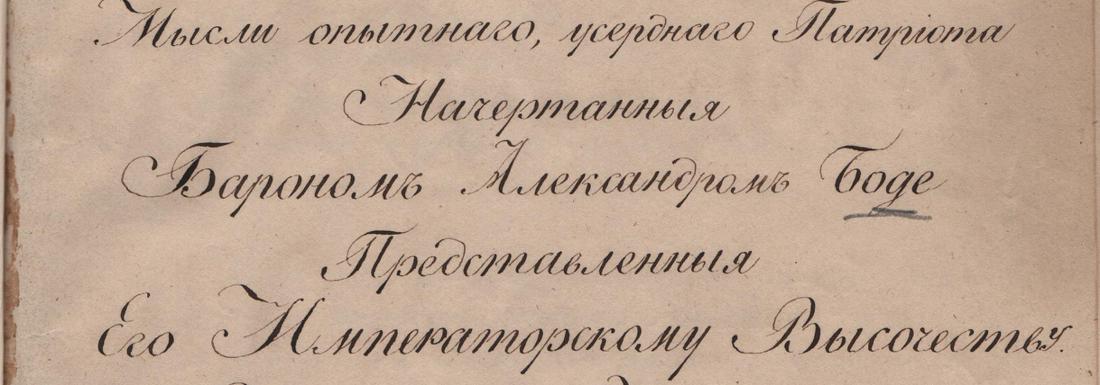 Мысли опытнаго, усерднаго Патріота
Начертанныя
Барономъ Александромъ Боде
Представленныя
Его Императорскому Высочеству.